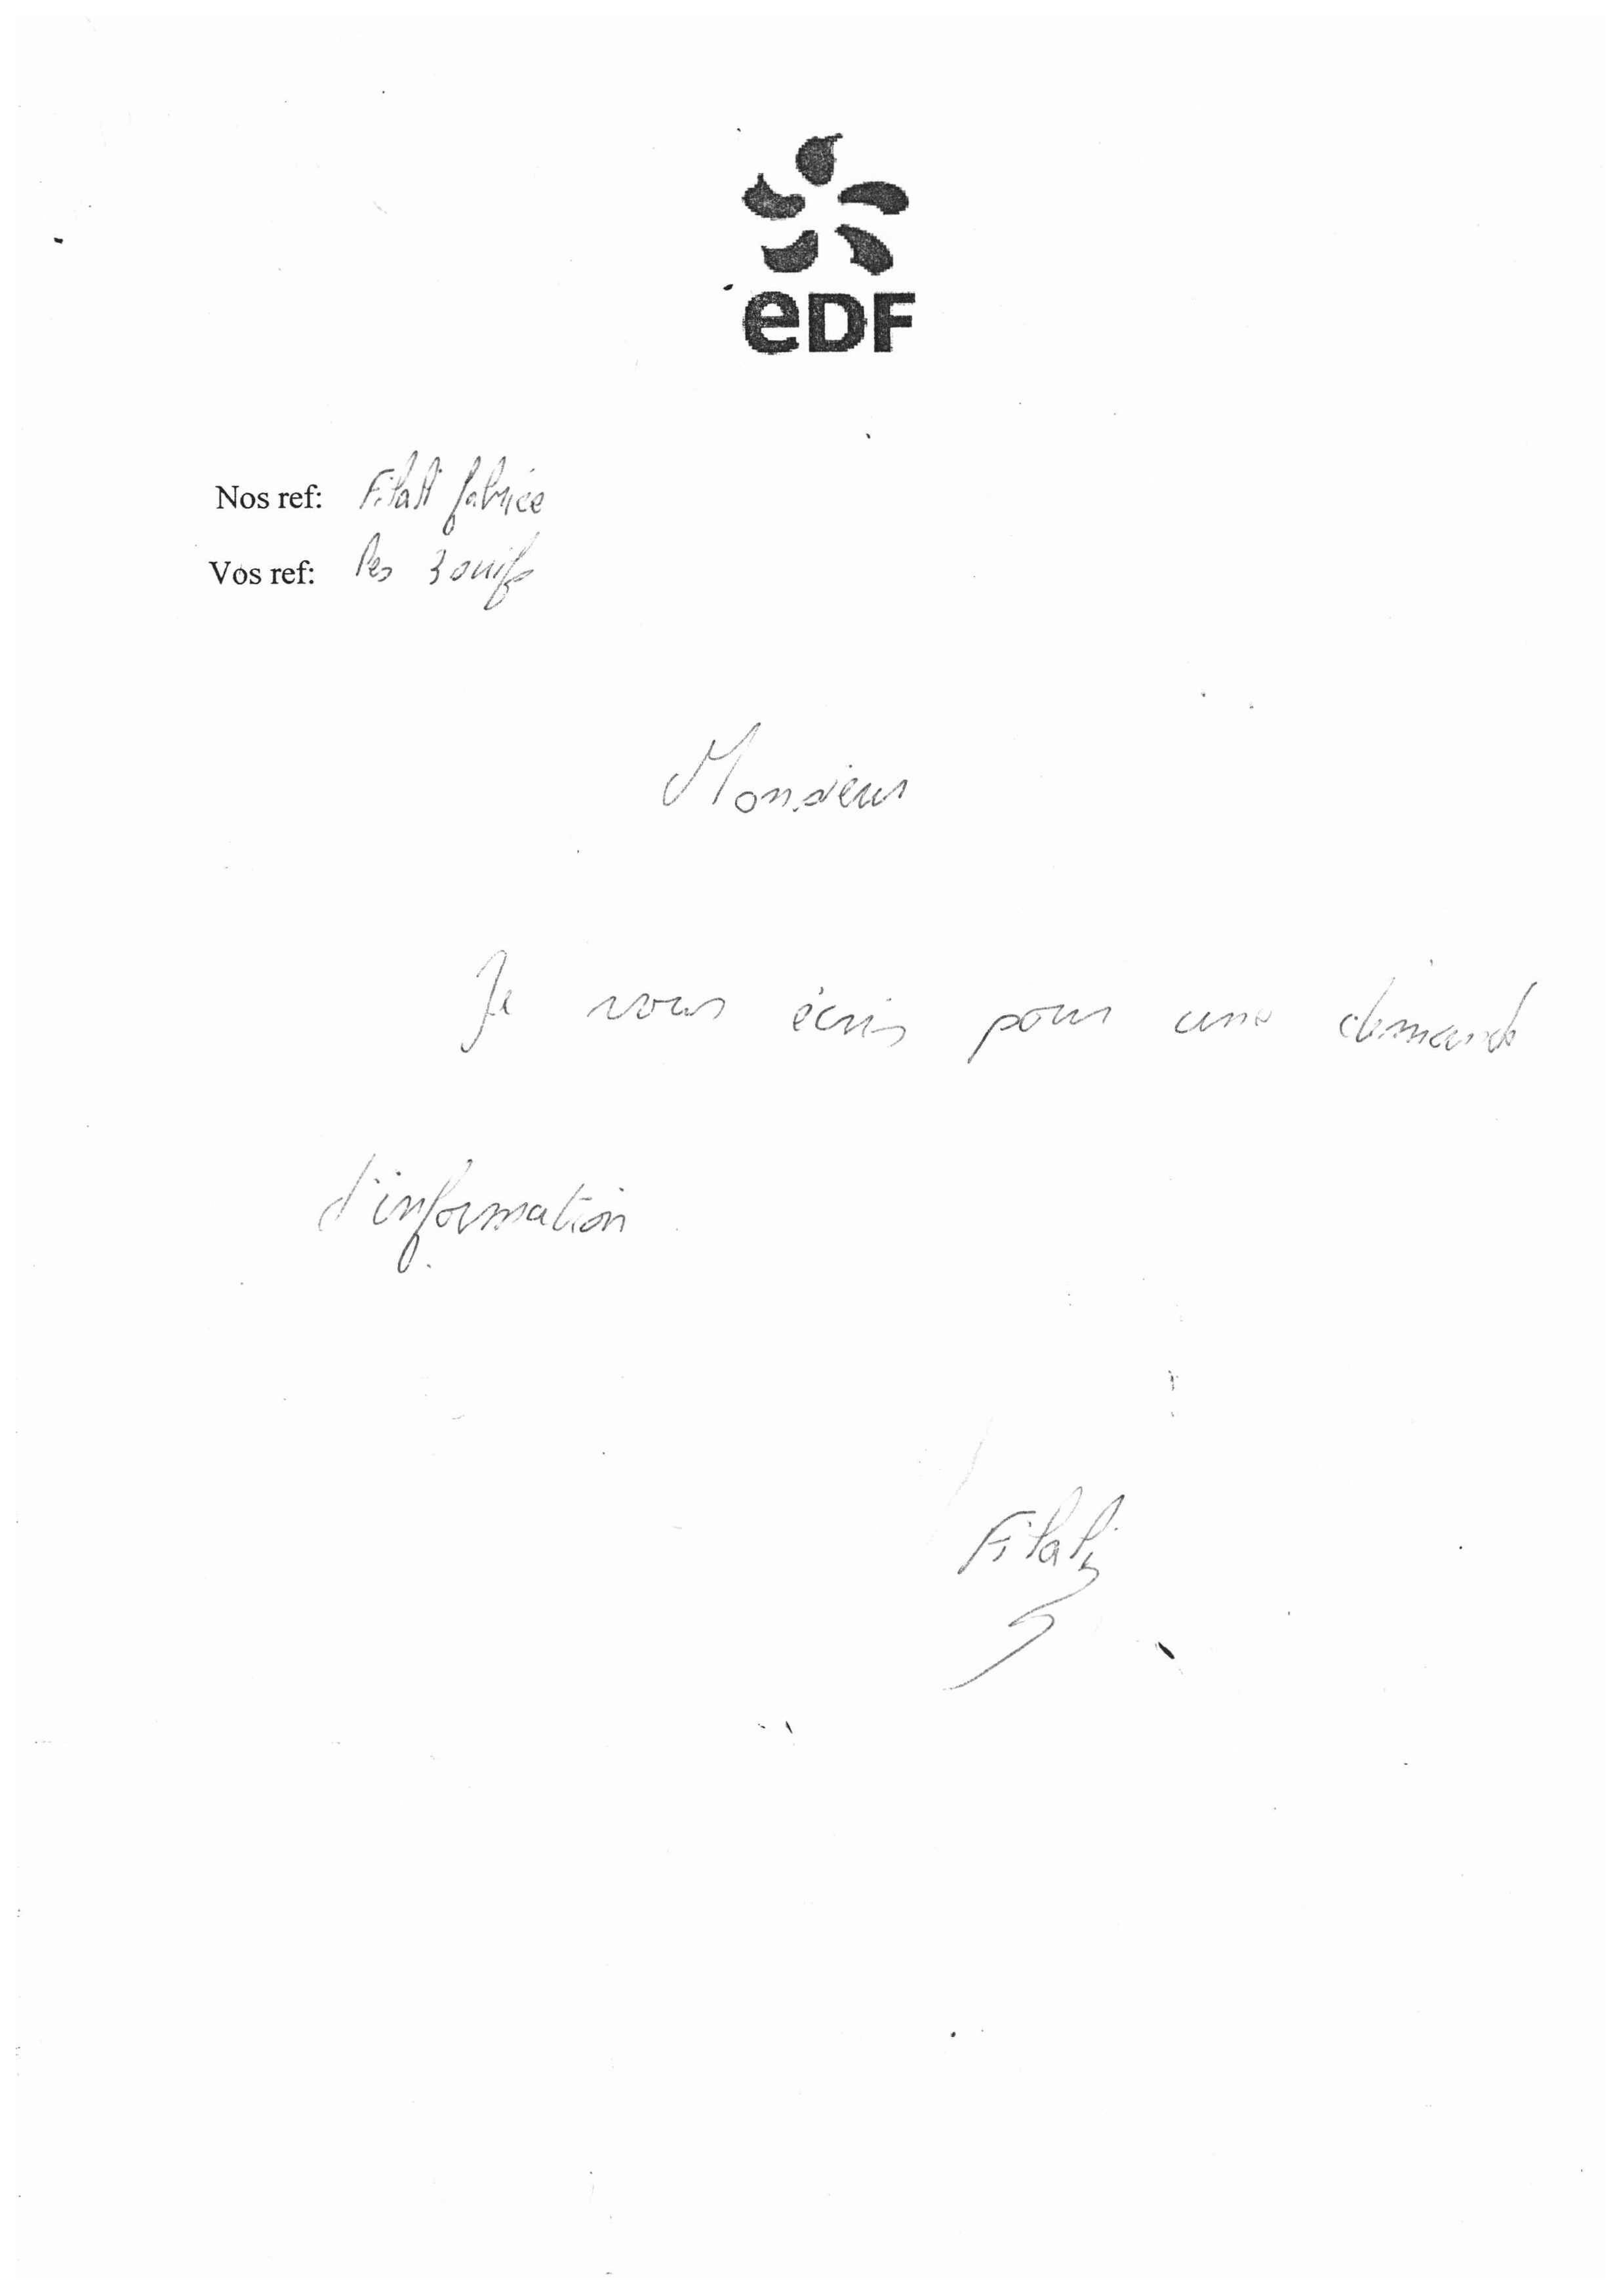 eDF
Nos ref: Filali fabrice
Vos ref: les 3 ouifs
Monsieur
Je vous écris pour une demande
d'information
Filali